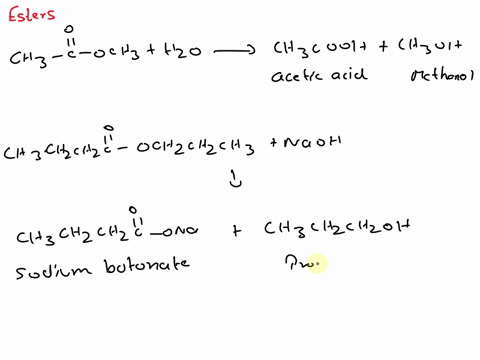 Esters
O
CH3-C-OCH3 + H2O → CH3COOH + CH3OH
acetic acid Methanol
O
CH3CH2CH2C-OCH2CH2CH3 + NaOH
↓
O
CH3CH2CH2C-ONa + CH3CH2CH2OH
Sodium butonate Pro